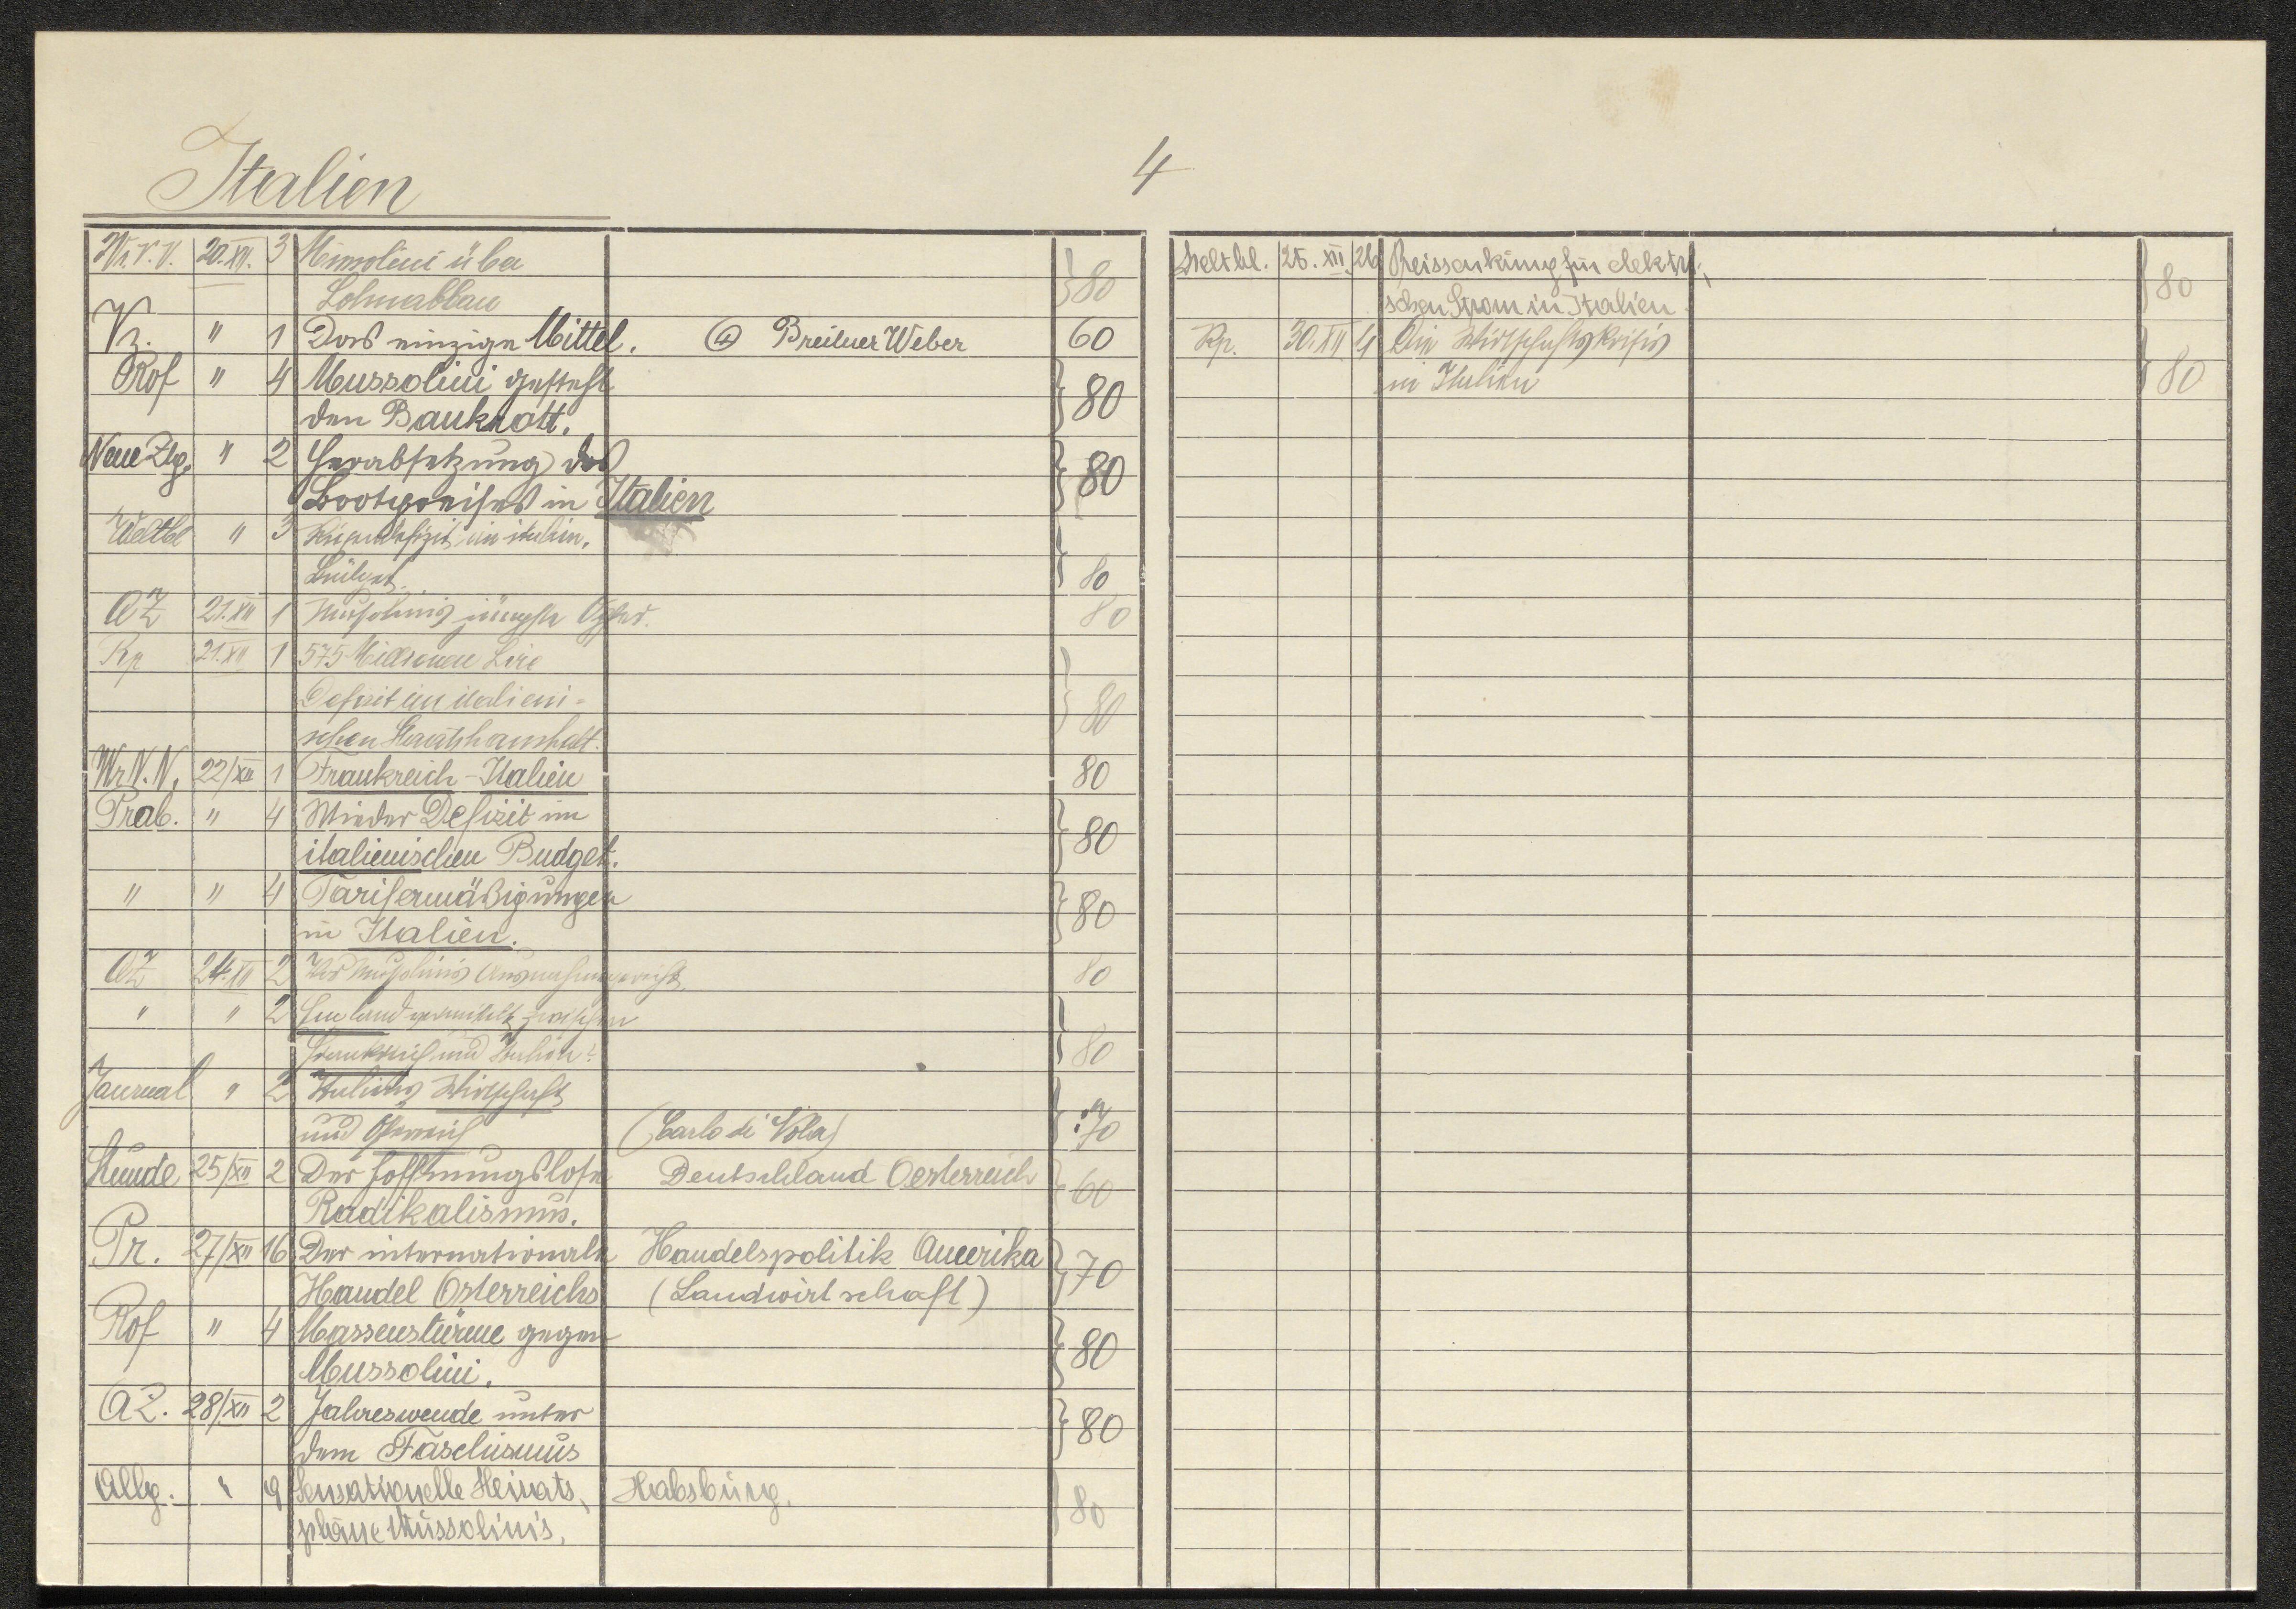 Italien
4
20.XII. 3 Mussolini über } 80
Lohnabbau
" 1 Das einzige Mittel. 60
Rof " 4 Mussolini gesteht } 80
den Bankrott.
Neue Ztg. " 2 Herabsetzung des } 80
Brotpreises in Italien
Weltbl " 3 Riesendefizit im italien. } 80
Budget.
AZ 21.XII 1 Mussolinis jüngste Opfer. 80
Rp 21.XII 1 575 Millionen Lire } 80
Defizit im italieni-
schen Staatshaushalt.
Wr.N.N. 22/XII 1 Frankreich-Italien 80
" 4 Wieder Defizit im } 80
italienischen Budget.
" " 4 Tarifermäßigungen } 80
in Italien.
AZ 24.XII 2 Vor Mussolinis Ausnahmegericht. 80
" " 2 England vermittelt zwischen } 80
Frankreich und Italien?
Journal " 2 Italiens Wirtschaft } 70
und Österreich (Carlo di Vola)
Stunde 25/XII 2 Der hoffnungslose Deutschland Oesterreich } 60
Radikalismus.
Pr. 27/XII 16 Der internationale Handelspolitik Amerika } 70
Handel Österreichs (Landwirtschaft)
Rof " 4 Massenstürme gegen } 80
Mussolini.
AZ. 28/XII 2 Jahreswende unter } 80
dem Faschismus
Allg. " 9 Sensationelle Heirats- Habsburg. } 80
pläne Mussolinis.
Weltbl. 25. XII. 26 Preissenkung für elektri- } 80
schen Strom in Italien.
Rp. 30.XII 4 Die Wirtschaftskrisis } 80
in Italien